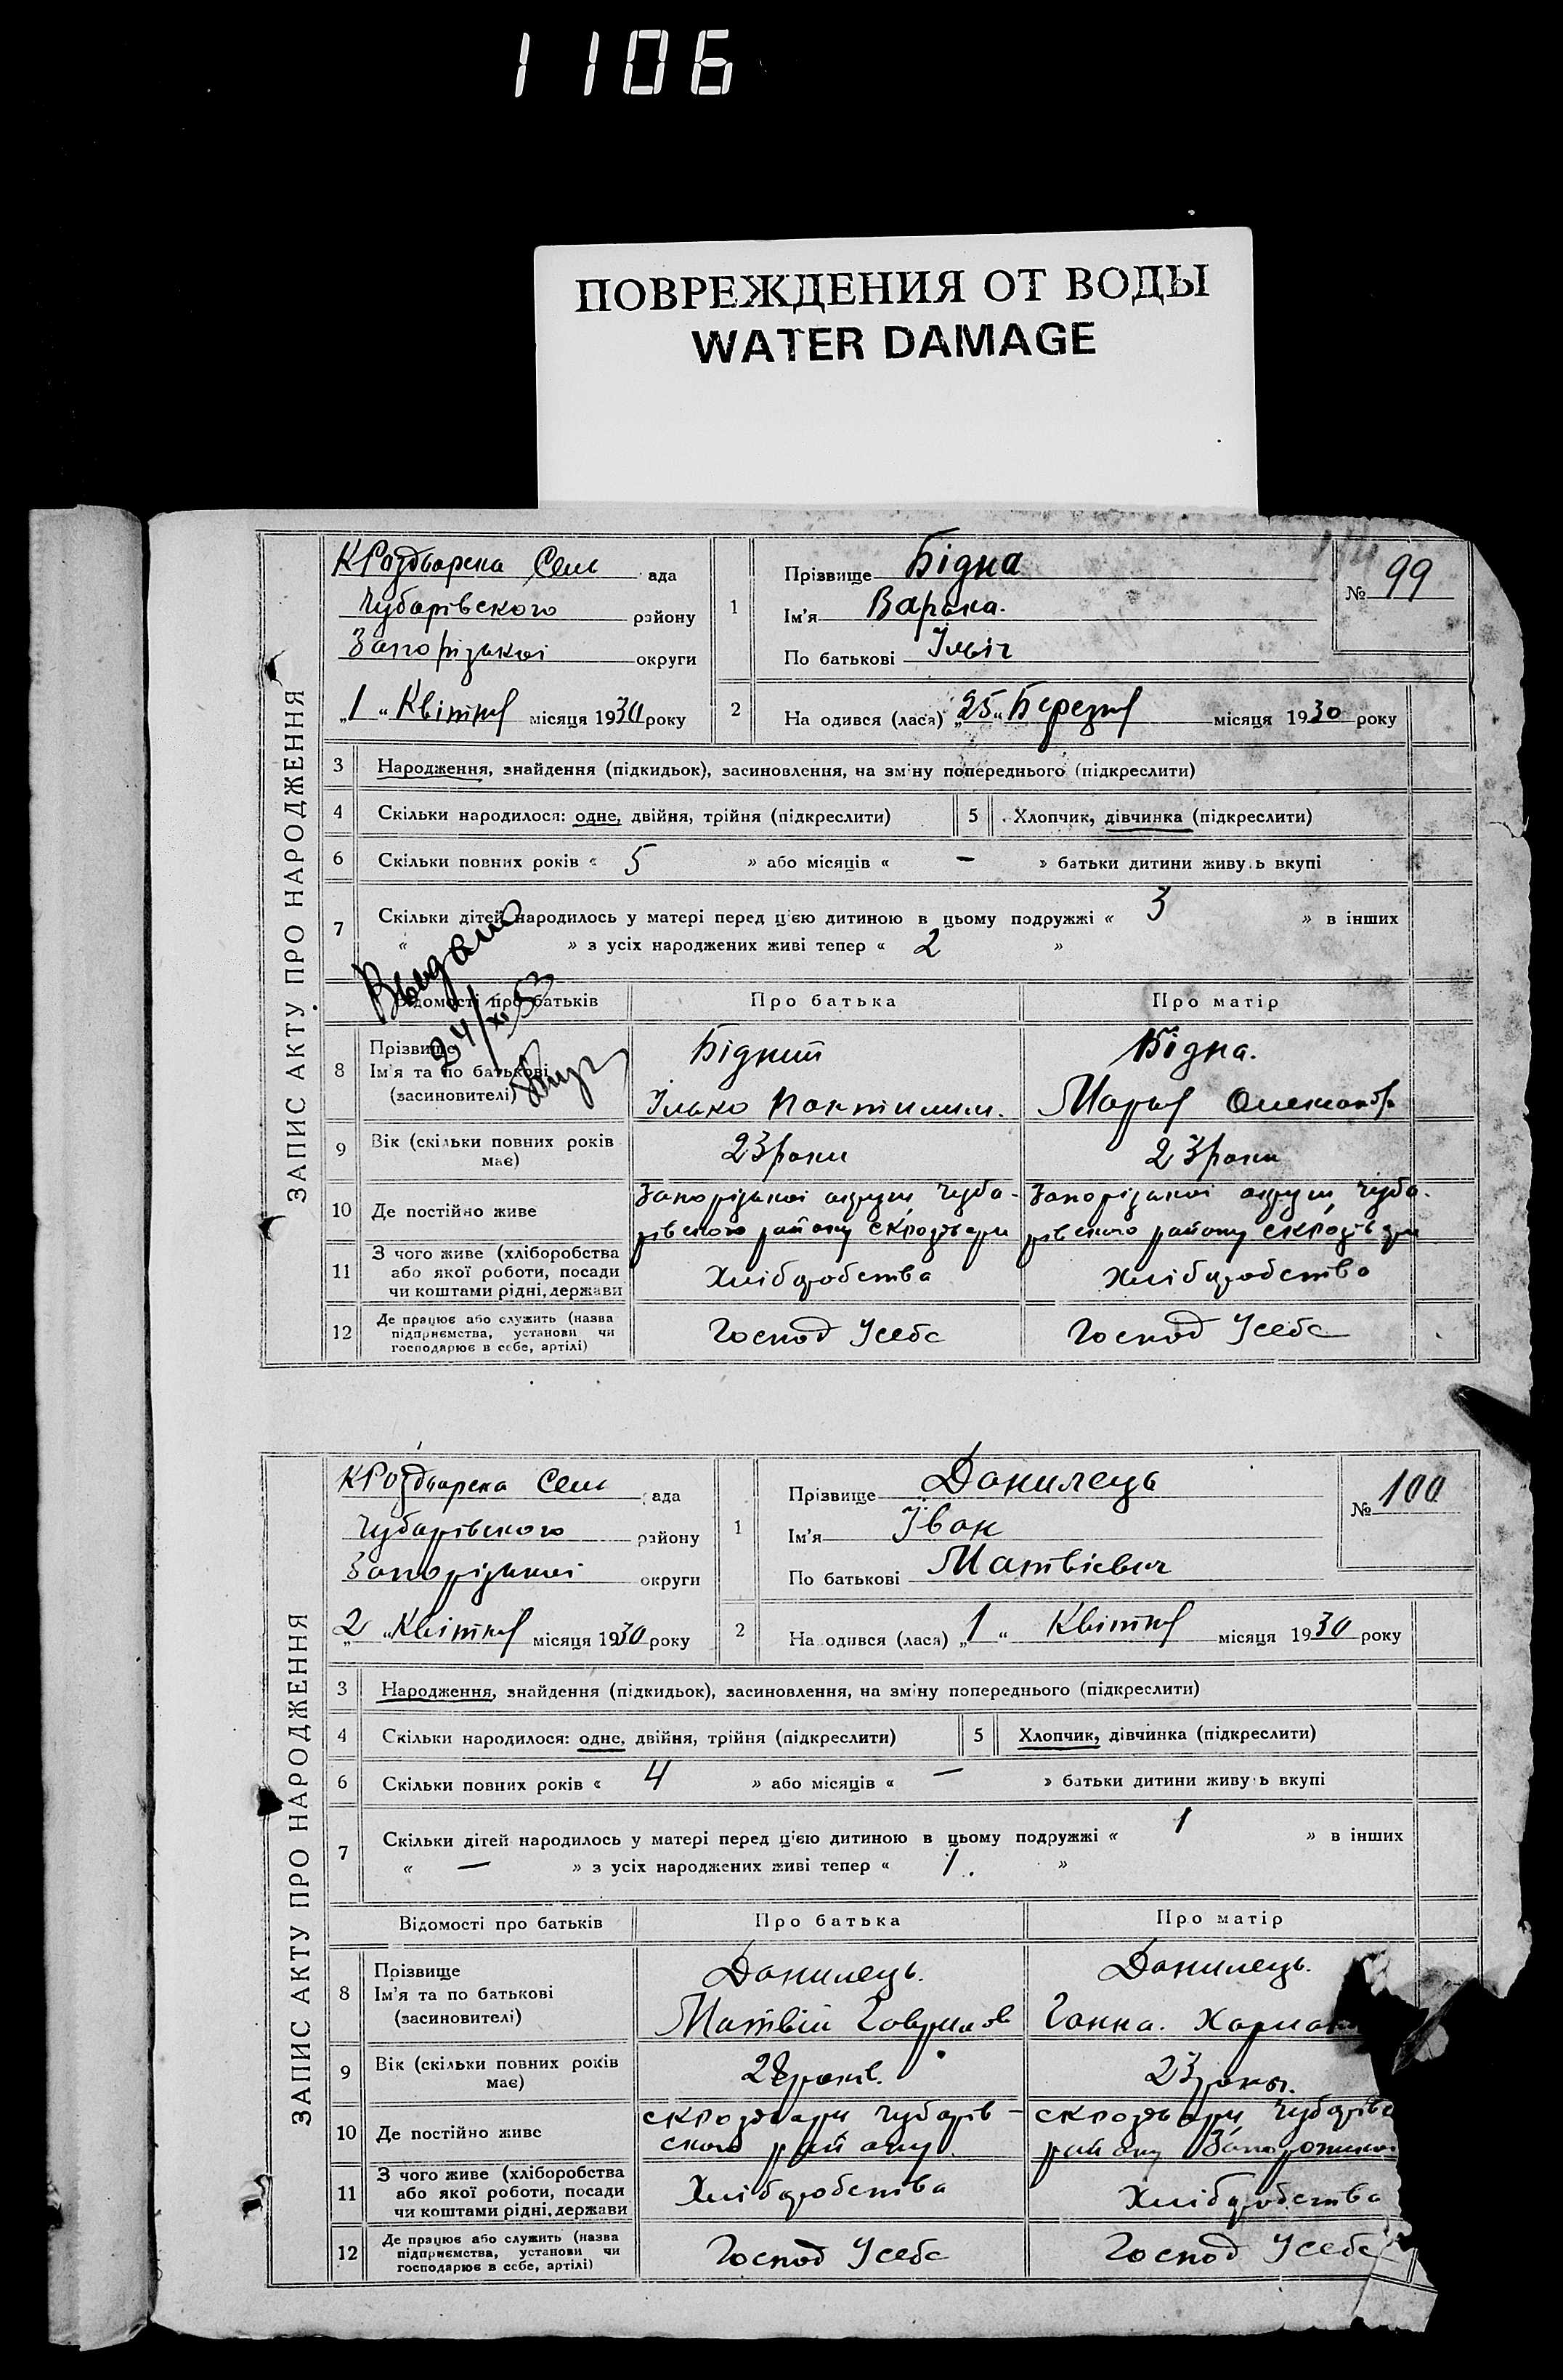 1106
ПОВРЕЖДЕНИЯ ОТ ВОДЫ
WATER DAMAGE
ЗАПИС АКТУ ПРО НАРОДЖЕННЯ
КРоздворска Сель ада
Чубарівского району
Запорізькоі округи
„1“ Квітня місяця 1930 року
1 Прізвище Бідна
Ім'я Варька.
По батькові Ільіч
№ 99
2 На одився (лася) „25“ Березня місяця 1930 року
3 Народження, знайдення (підкидьок), засиновлення, на зміну попереднього (підкреслити)
4 Скільки народилося: одне, двійня, трійня (підкреслити) 5 Хлопчик, дівчинка (підкреслити)
6 Скільки повних років « 5 » або місяців « – » батьки дитини живуть вкупі
7 Скільки дітей народилось у матері перед цією дитиною в цьому подружжі « 3 » в інших
« » з усіх народжених живі тепер « 2 »
Выдано
24/XI 53
Відомості про батьків Про батька Про матір
8 Прізвище Бідний Бідна.
Ім'я та по батькові
(засновителі) Ілько Пантилим. Марія Олександр
9 Вік (скільки повних років має) 23 роки 23 роки
10 Де постійно живе Запорізькоі округи Чуба- Запорізькоі округи Чуба-
рівского району рівского району
11 З чого живе (хліборобства
або якої роботи, посади Хліборобства Хліборобства
чи коштами рідні, держави
12 Де працює або служить (назва
підприємства, установи чи Господ Усебе Господ Усебе
господарює в себе, артілі)
ЗАПИС АКТУ ПРО НАРОДЖЕННЯ
КРоздворска Сель ада
Чубарівского району
Запорізькоі округи
„2“ Квітня місяця 1930 року
1 Прізвище Данилець
Ім'я Іван
По батькові Матвієвич
№ 100
2 На одився (лася) „1“ Квітня місяця 1930 року
3 Народження, знайдення (підкидьок), засиновлення, на зміну попереднього (підкреслити)
4 Скільки народилося: одне, двійня, трійня (підкреслити) 5 Хлопчик, дівчинка (підкреслити)
6 Скільки повних років « 4 » або місяців « – » батьки дитини живуть вкупі
7 Скільки дітей народилось у матері перед цією дитиною в цьому подружжі « 1 » в інших
« – » з усіх народжених живі тепер « 1. »
Відомості про батьків Про батька Про матір
8 Прізвище Данилець. Данилець.
Ім'я та по батькові
(засиновителі) Матвій Гаврилов Ганна.
9 Вік (скільки повних років має) 28 років. 23 роки.
10 Де постійно живе Чубарів- Чубарівс
ского району району
11 З чого живе (хліборобства
або якої роботи, посади Хліборобства Хліборобства
чи коштами рідні, держави
12 Де працює або служить (назва
підприємства, установи чи Господ Усебе Господ Усебе
господарює в себе, артілі)